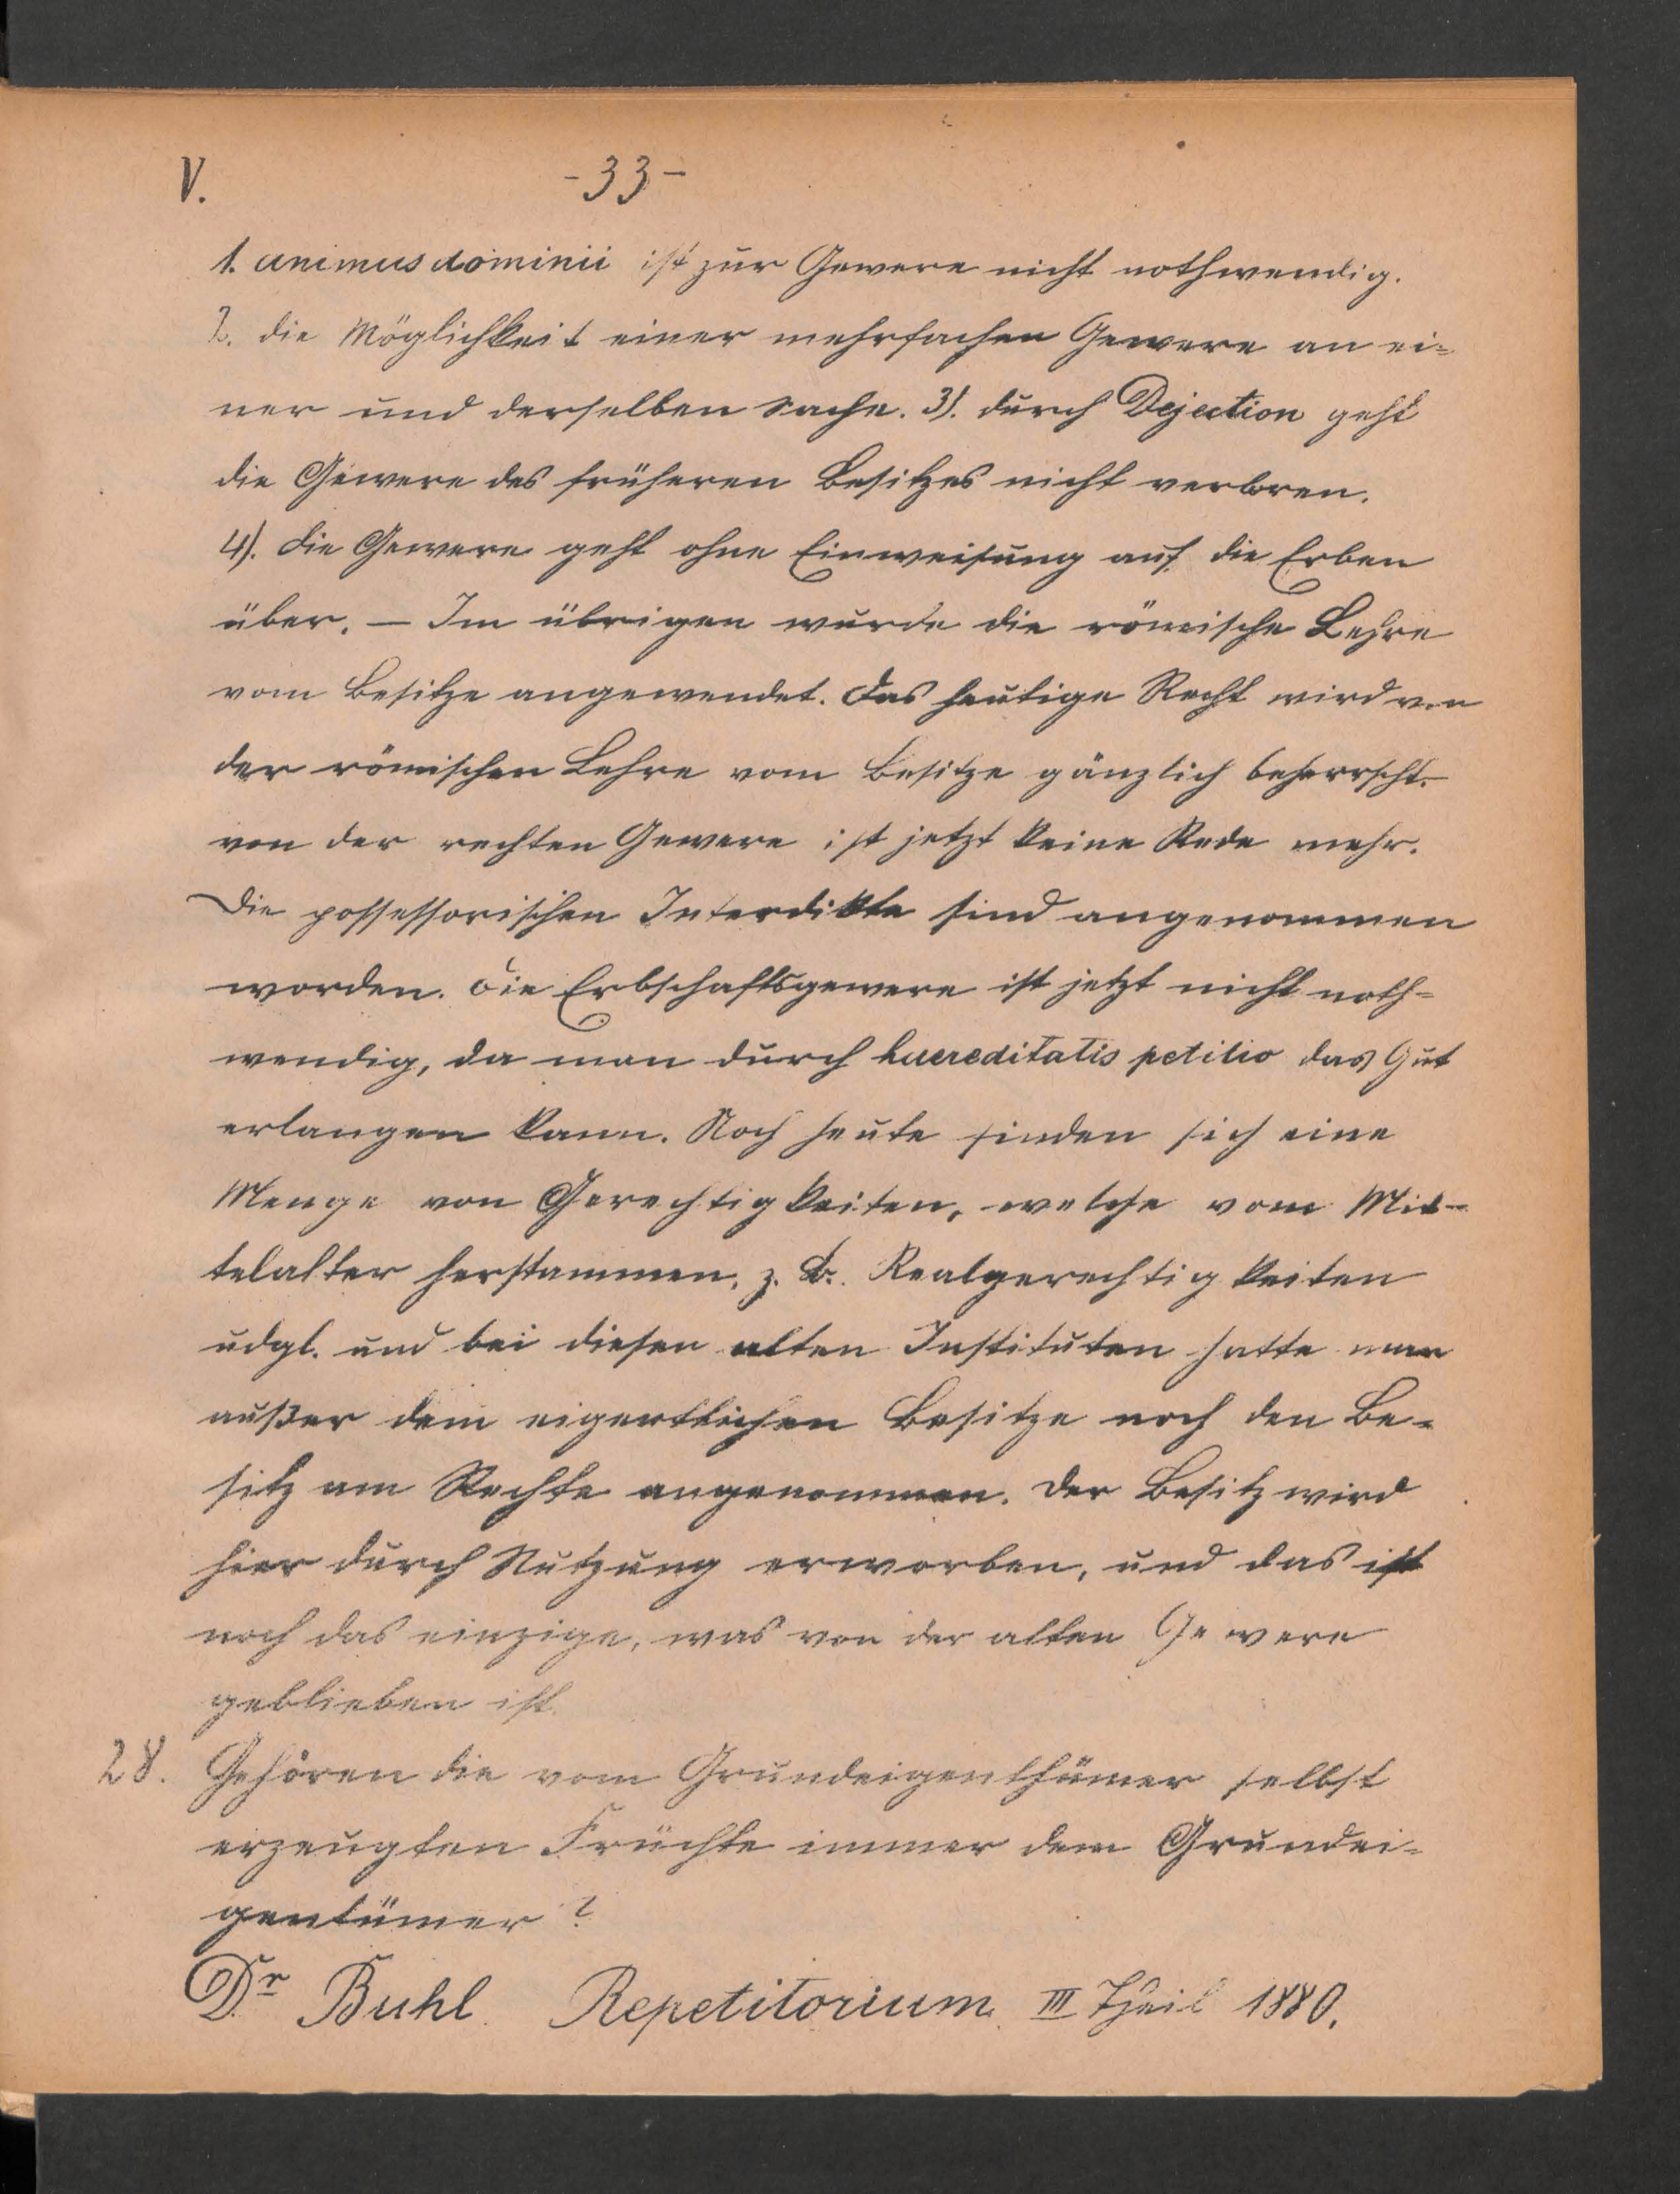 V. -33-
1. animus dominii ist zur Gewere nicht nothwendig.
2. die Möglichkeit einer mehrfachen Gewere an ei=
ner und derselben Sache. 3). durch Dejection geht
die Gewere des früheren Besitzes nicht verloren.
4). die Gewere geht ohne Einweisung auf die Erben
über. — Im übrigen wurde die römische Lehre
vom Besitze angewendet. Das heutige Recht wird von
der römischen Lehre vom Besitze gänzlich beherrscht.
von der rechten Gewere ist jetzt keine Rede mehr.
Die possessorischen Interdikte sind angenommen
worden. Die Erbschaftsgewere ist jetzt nicht noth=
wendig, da man durch haereditatis petitio das Gut
erlangen kann. Noch heute finden sich eine
Menge von Gerechtigkeiten, welche vom Mit-
telalter herstammen, z. B. Realgerechtigkeiten
udgl. und bei diesen alten Instituten hatte man
außer dem eigentlichen Besitze noch den Be-
sitz am Rechte angenommen. Der Besitz wird
hier durch Nutzung erworben, und das ist
noch das einzige, was von der alten Gewere
geblieben ist.
28. Gehören die vom Grundeigenthümer selbst
erzeugten Früchte immer dem Grundei-
gentümer?
Dr. Buhl. Repetitorium. III Theil 1880.